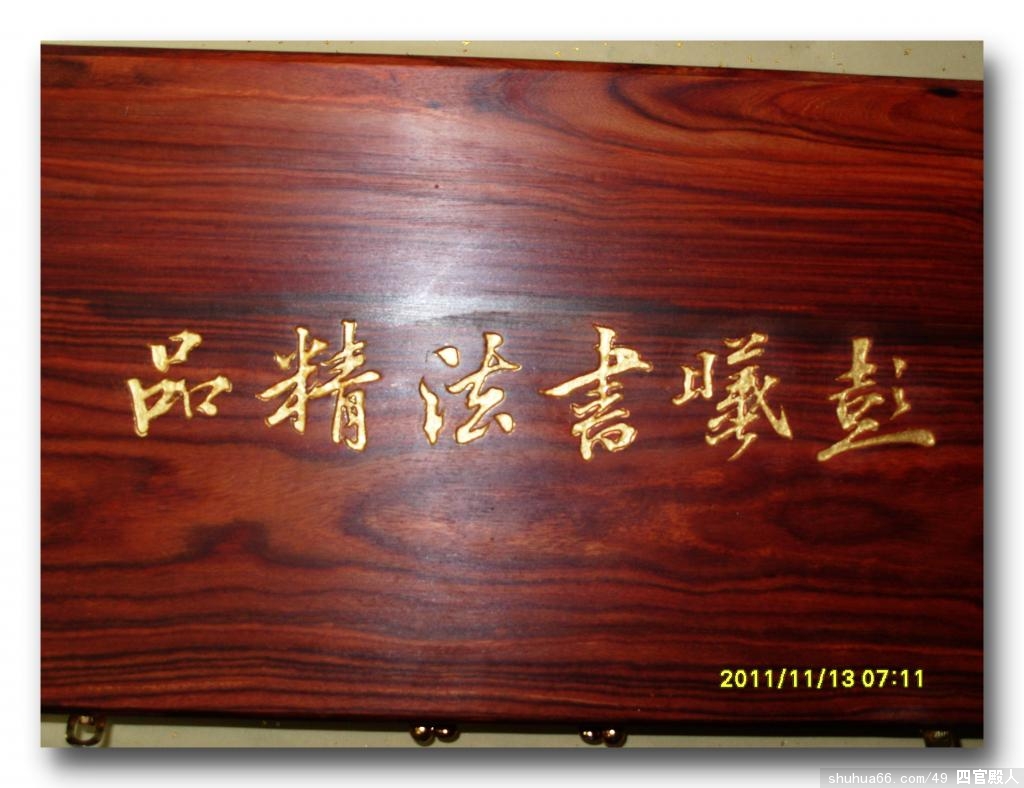 彭曦書法精品
2011/11/13 07:11
shuhua66.com/49 四官殿人